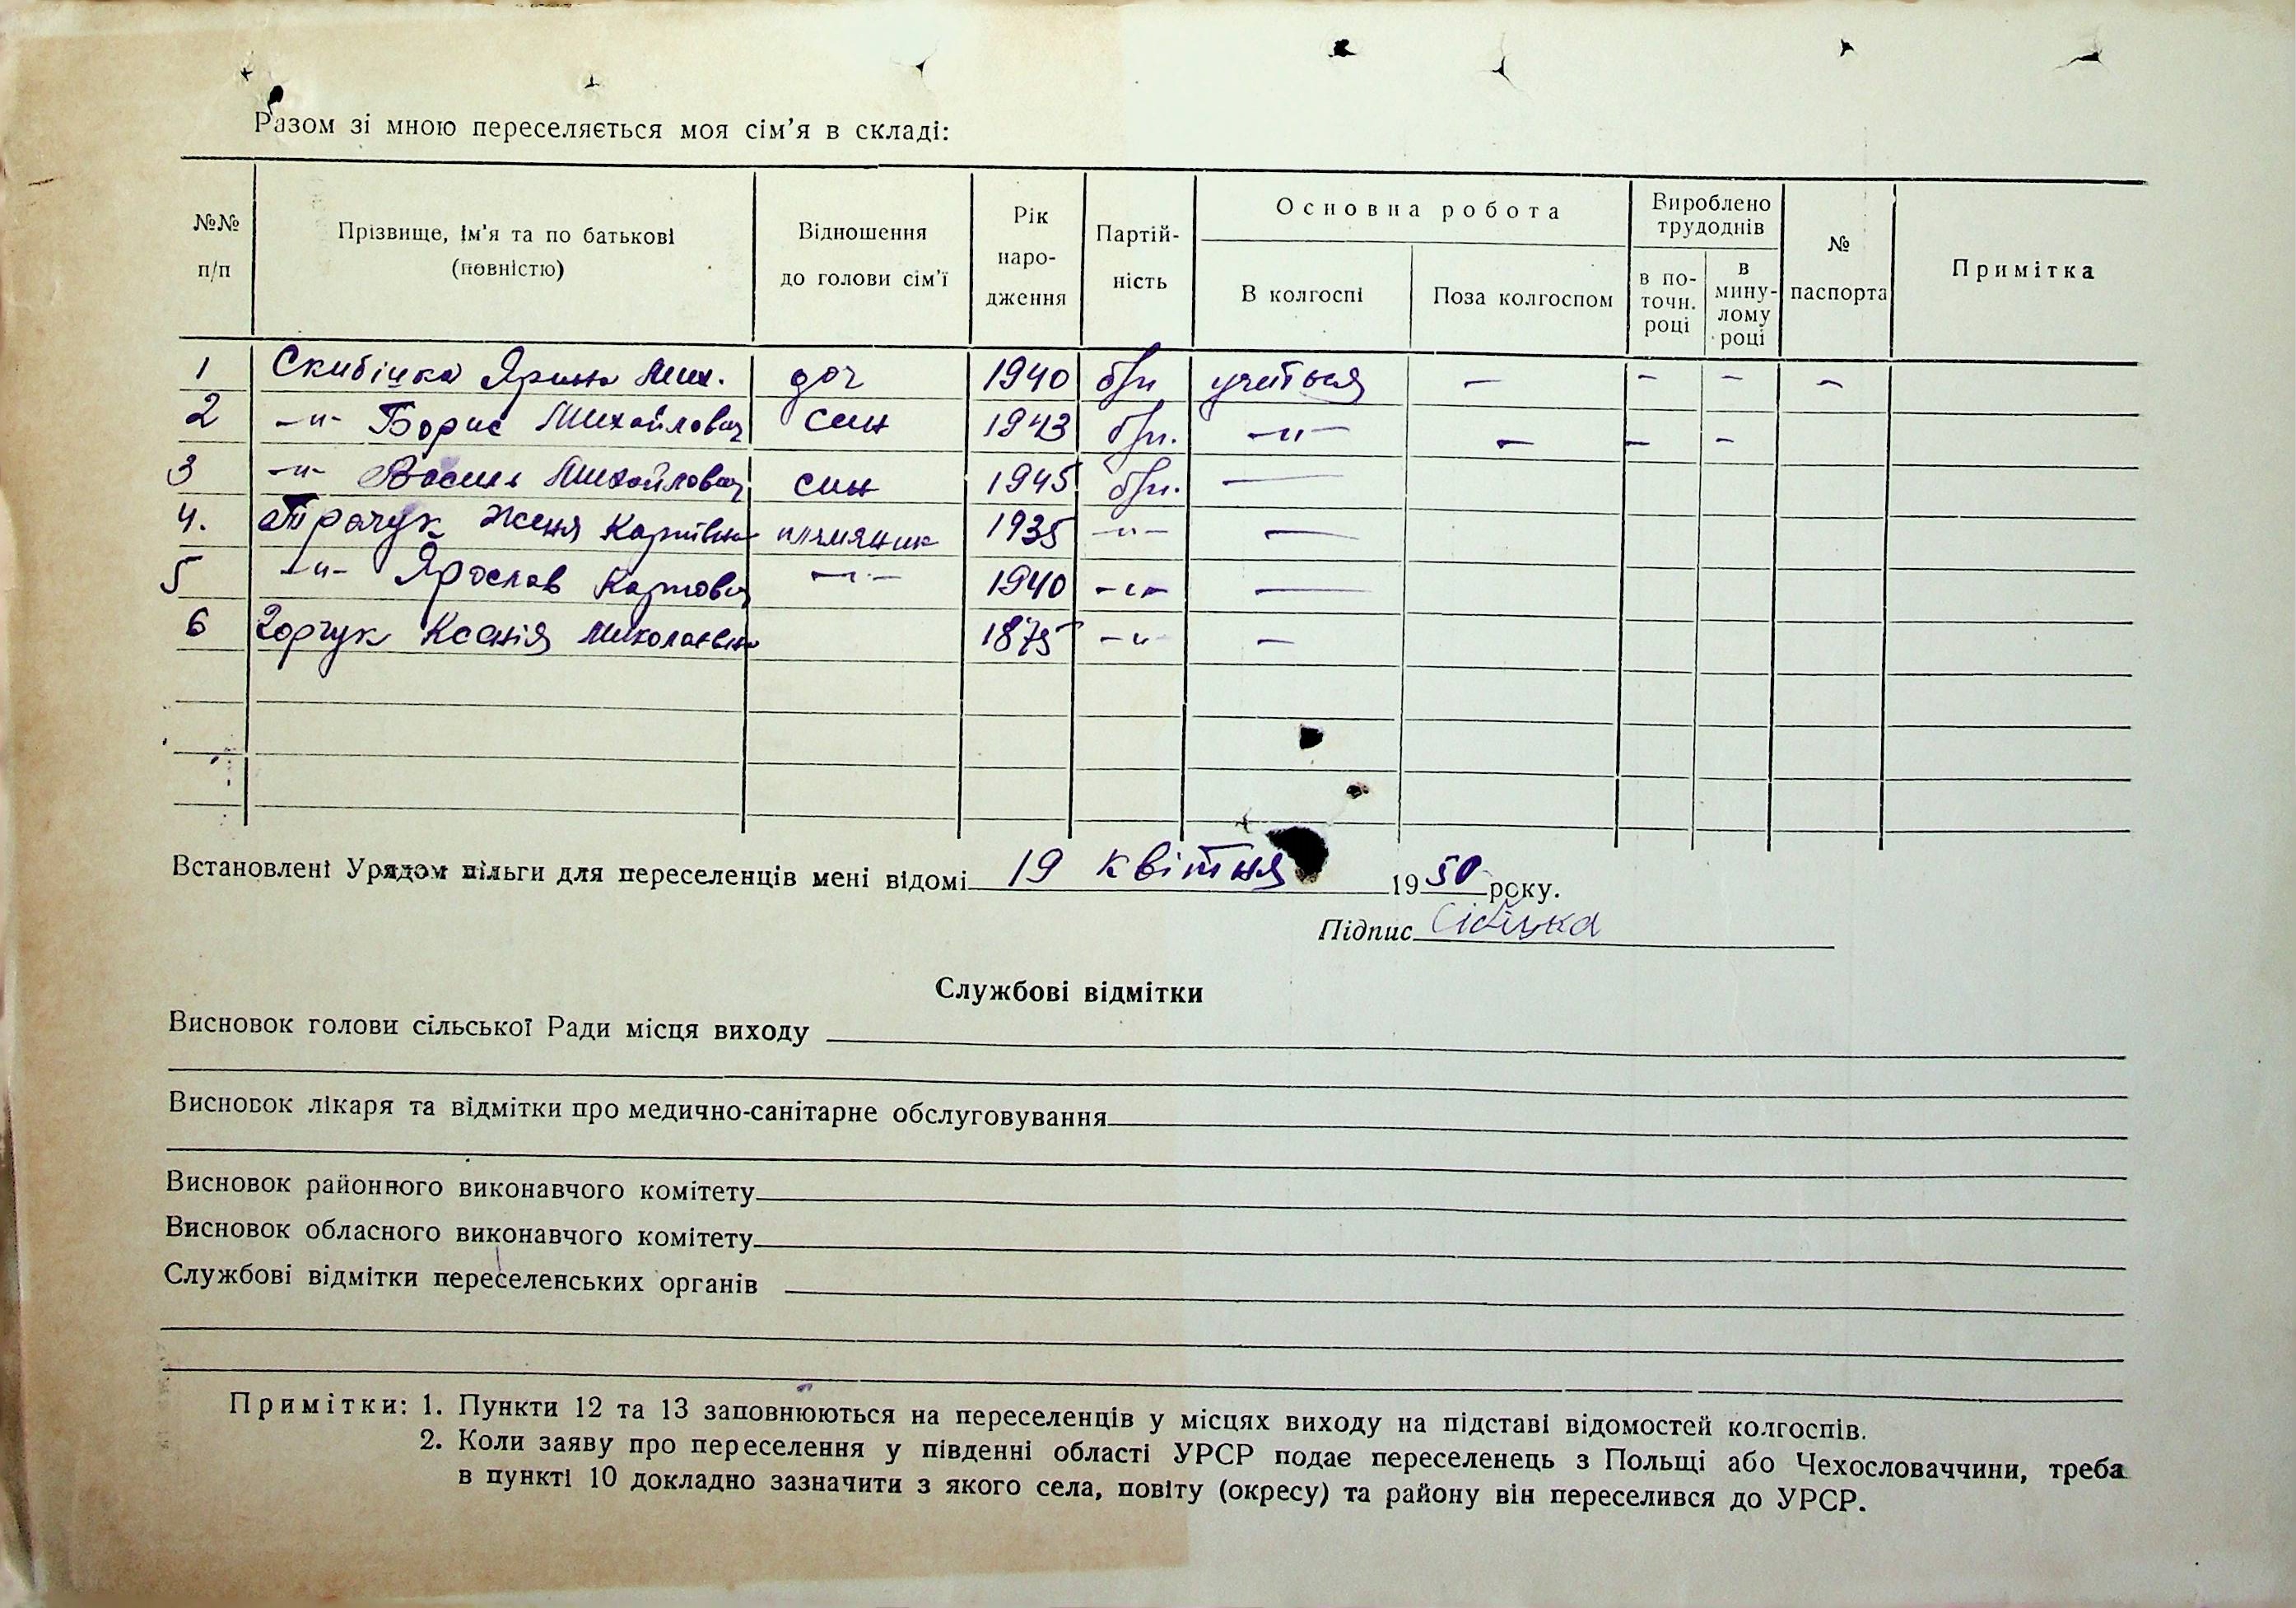 Разом зі мною переселяється моя сім’я в складі:
№№ п/п
Прізвище, ім’я та по батькові (повністю)
Відношення до голови сім’ї
Рік народження
Партійність
Основна робота
В колгоспі
Поза колгоспом
Вироблено трудоднів
в поточн. році
в минулому році
№ паспорта
Примітка
1 Скибіцка Ярина Мих. доч 1940 б/п учиться — — — —
2 -"- Борис Михайлович син 1943 б/п. -"- — — —
3 -"- Василь Михайлович син 1945 б/п. —
4. Трачук Женя Карпівна племяник 1935 -"- —
5 -"- Ярослав Карпович -"- 1940 -"- —
6 Ксенія Миколаєвна 1875 -"- —
Встановлені Урядом пільги для переселенців мені відомі 19 квітня 1950 року.
Підпис
Службові відмітки
Висновок голови сільської Ради місця виходу
Висновок лікаря та відмітки про медично-санітарне обслуговування
Висновок районного виконавчого комітету
Висновок обласного виконавчого комітету
Службові відмітки переселенських органів
Примітки: 1. Пункти 12 та 13 заповнюються на переселенців у місцях виходу на підставі відомостей колгоспів.
2. Коли заяву про переселення у південні області УРСР подає переселенець з Польщі або Чехословаччини, треба
в пункті 10 докладно зазначити з якого села, повіту (окресу) та району він переселився до УРСР.